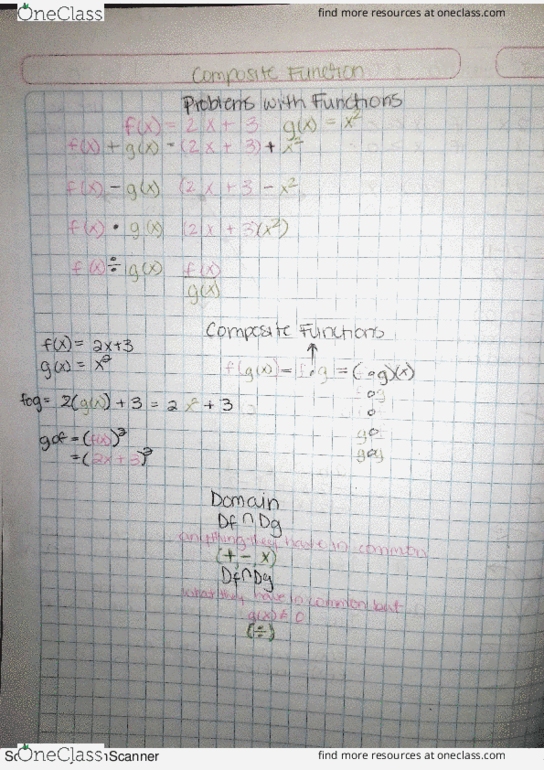 OneClass
find more resources at oneclass.com
Composite Function
Problems with Functions
f(x) = 2x + 3 g(x) = x²
f(x) + g(x) = (2x + 3) + x²
f(x) - g(x) (2x + 3 - x²
f(x) • g(x) (2x + 3)(x²)
f(x) ÷ g(x) f(x)
g(x)
Composite Functions
f(x) = 2x+3
g(x) = x²
f(g(x)) = f∘g = (∘g)(x)
fog = 2(g(x)) + 3 = 2x² + 3
gof = (f(x))²
= (2x + 3)²
Domain
Df∩Dg
anything they have in common
(+ - x)
Df∩Dg
what they have in common but
g(x) ≠ 0
(÷)
OneClass
Scanner
find more resources at oneclass.com